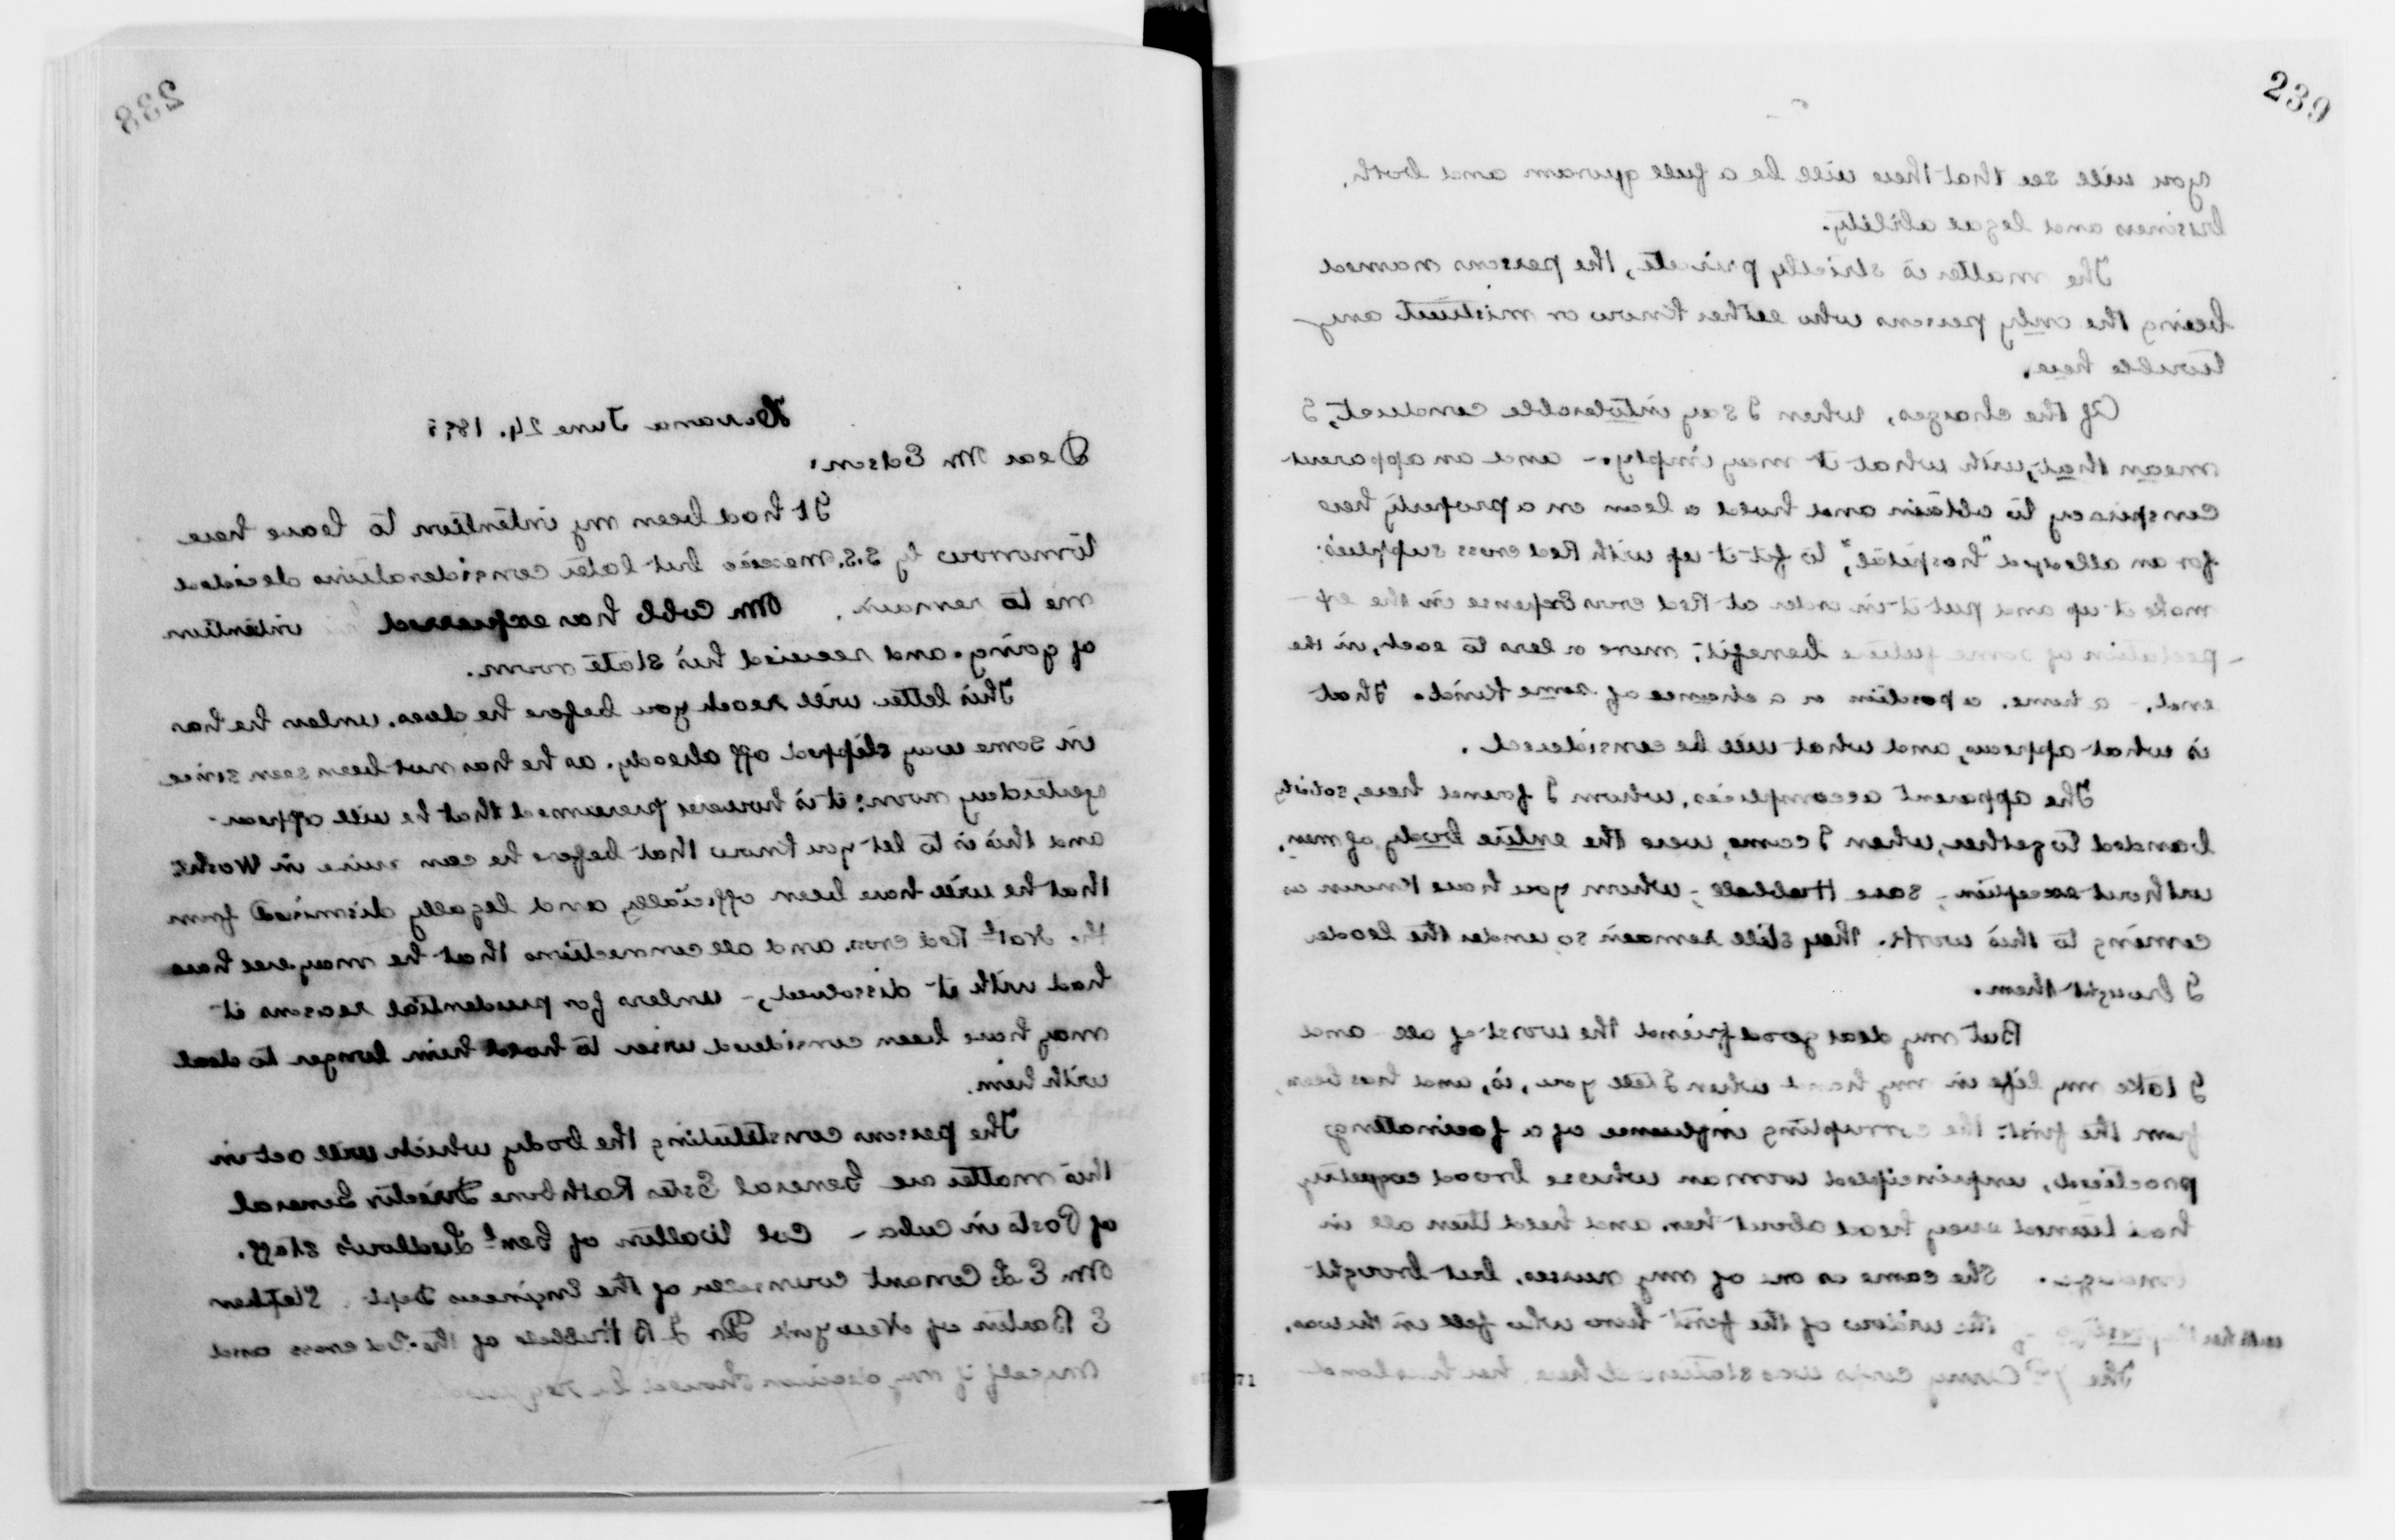 238
Havana June 24. 189
Dear Mr Edson:
It had been my intention to leave here
tomorrow by S.S. Mexico but later considerations decided
me to remain. Mr Cobb has expressed his intention
of going and secured his state room.
This letter will reach you before he does. unless he has
in some way slipped off already. as he has not been seen since
yesterday noon; it is however presumed that he will appear -
and this is to let you know that before he can arive in Washt
that he will have been officially and legally dismissed from
the Natl Red cross. and all connections that he may ever have
had with it dissolved, - unless for prudential reasons it
may have been considered wiser to hold him longer to deal
with him.
The persons constituting the body which will act in
this matter are General Estes Rathbone Director General
of Posts in Cuba - Col Walton of Genl Ludlow's staff.
Mr E L Conant counselor of the Engineers Dept. Stephen
E Barton of New York Dr J B Hubbell of the Red cross and
myself if my decision should be
239
you will see that there will be a full quoram and both,
business and legal ability.
The matter is strictly private, the persons named
being the only persons who either know or mistrust any
trouble here.
Of the charges, when I say intolerable conduct, I
mean that, with what it may imply. - and an apparent
conspiracy to obtain and hold a loan on a property here
for an alleged "hospital", to fit it up with Red cross supplies
make it up and put it in order at Red cross Expense in the ex -
- pectation of some future benefit; more or less to each, in the
end, - a home. a position or a chance of some kind. That
is what appears, and what will be considered.
The apparent accomplices, whom I found here, solidly
banded together, when I came, were the entire body of men,
without exception, - save Hubbell; - whom you have known as
coming to this work. They still remain so under the leader
I brought them.
But my dear good friend the worst of all - and
I take my life in my hand when I tell you, is, and has been,
from the first: the corrupting influence of a facinating
practiced, unprincipled woman whose broad coquetry
had turned every head about her. and held them all in
. She came as one of my nurses. but brought
with her the widow of the first hero who fell in the war.
The 7th Army corps was stationed here. her husband
71